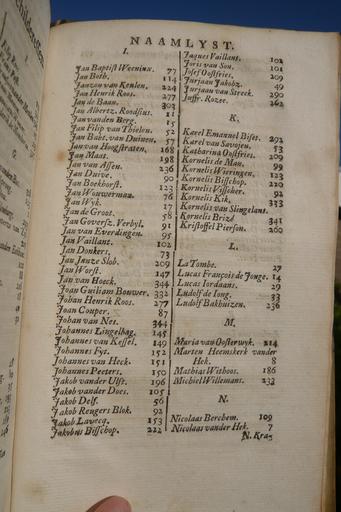 NAAMLYST.
I.
Jan Baptist Weeninx. 77
Jan Both. 114
Janzon van Keulen. 224
Jan Henrik Roos. 277
Jan de Baan. 303
Jan Albertz. Roodtius. 11
Jan vanden Berg. 15
Jan Filip van Thielen. 52
Jan Bapt. van Duinen. 57
Jan van Hoogstraten. 168
Jan Maat. 198
Jan van Assen. 236
Jan Duive. 90
Jan Boekhorst. 123
Jan Wouwerman. 76
Jan Wyk. 17
Jan de Groot. 58
Jan Goversz. Verbyl. 91
Jan van Everdingen. 95
Jan Vaillant. 102
Jan Donkers. 73
Jan Janze Slob. 209
Jan Worst. 147
Jan van Hoeck. 344
Joan Guiliam Bouwer. 332
Johan Henrik Roos. 277
Joan Couper. 87
Johan van Nes. 344
Johannes Lingelbag. 145
Johannes van Kessel. 149
Johannes Fyt. 152
Johannes van Heck. 151
Johannes Peeters. 150
Jakob vander Ulft. 196
Jakob vander Does. 105
Jakob Delf. 56
Jakob Reugers Blok. 92
Jakob Lavecq. 153
Jakobus Bisschop. 222
Jaques Vaillant. 102
Joris van Son. 101
Josef Oostfries. 209
Jurjaan Jakobz. 49
Jurjaan van Streek. 290
Juffr. Rozee. 262
K.
Karel Emanuel Biset. 292
Karel van Savojen. 53
Katharina Oostfries. 209
Kornelis de Man. 99
Kornelis Wieringen. 123
Kornelis Bisschop. 220
Kornelis Visscher. 92
Kornelis Kik. 333
Kornelis van Slingelant.
Kornelis Brizé 341
Kristoffel Pierson. 260
L.
La Tombe. 27
Lucas François de Jonge. 14
Lucas Jordaans. 29
Ludolf de Jong. 33
Ludolf Bakhuizen. 236
M.
Maria van Oosterwyk. 214
Marten Heemskerk vander
Hek. 8
Mathias Withoos. 186
Michiel Willemans. 233
N.
Nicolaas Berchem. 109
Nicolaas vander Hek. 7
N. Kraz